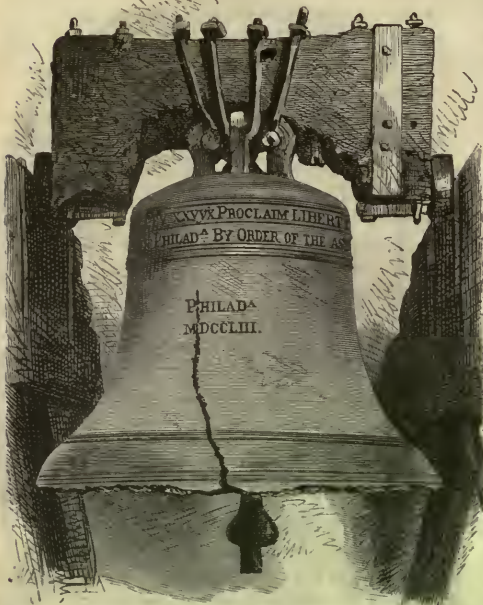 XXVVX PROCLAIM LIBERT
PHILADᴬ BY ORDER OF THE AS
PHILADᴬ
MDCCLIII.